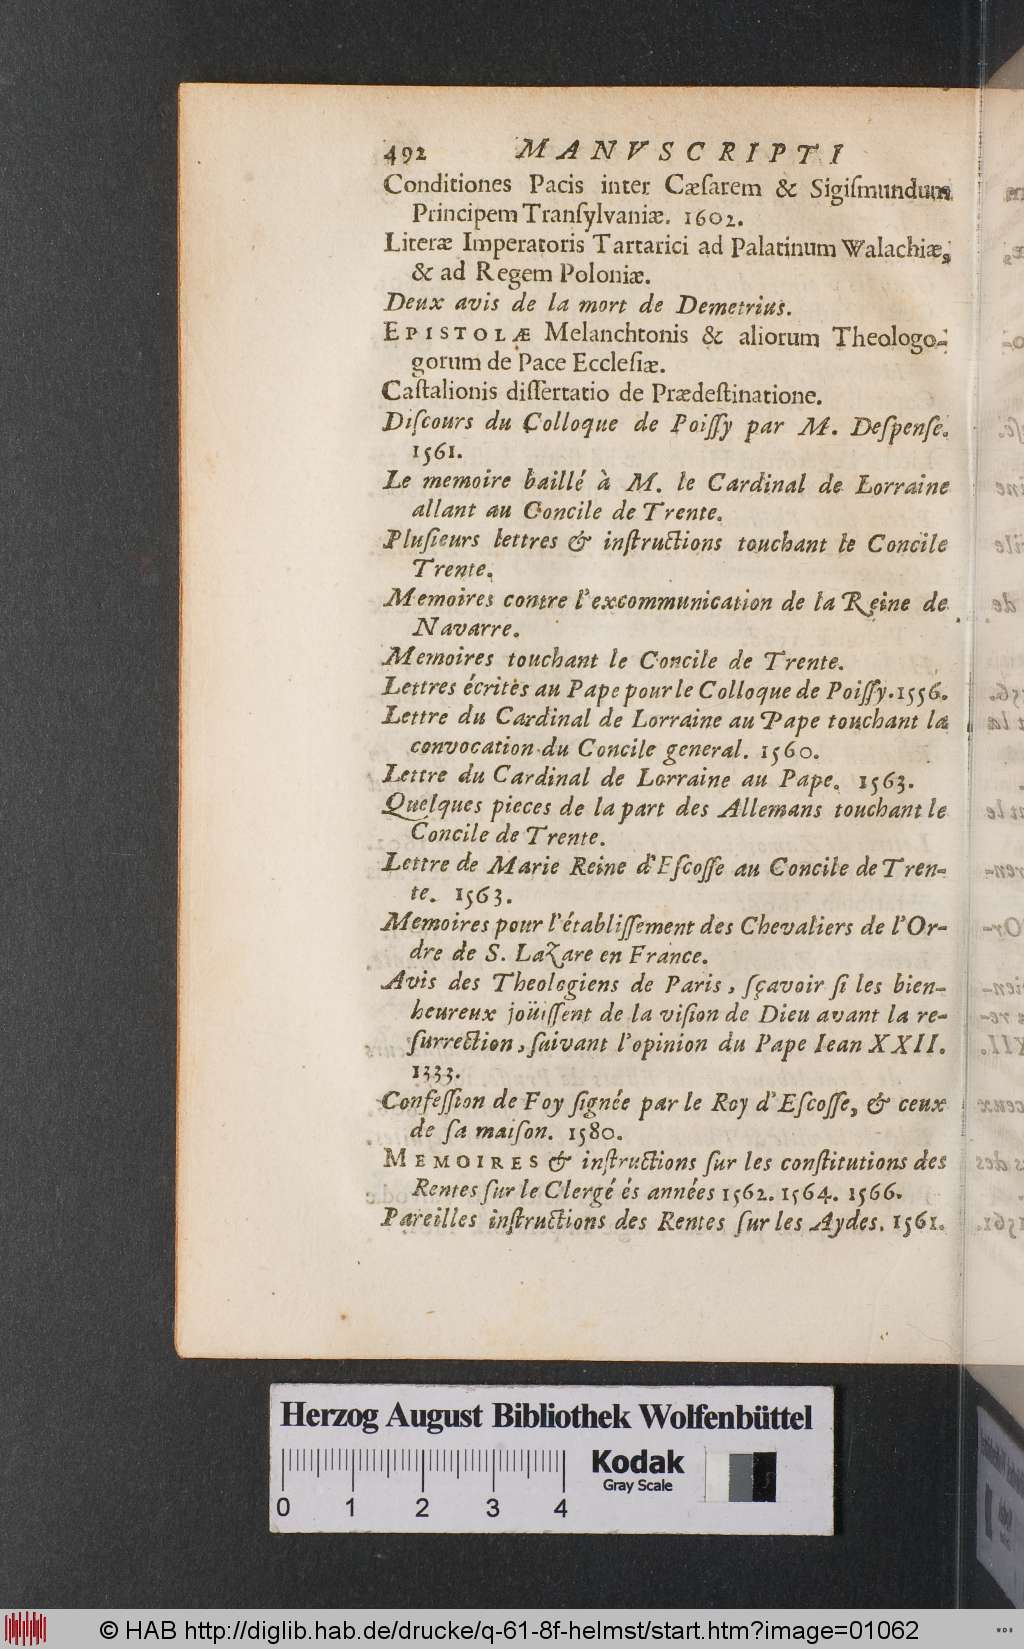 492 MANVSCRIPTI
Conditiones Pacis inter Cæſarem & Sigiſmundum
Principem Tranſylvaniæ. 1602.
Literæ Imperatoris Tartarici ad Palatinum Walachiæ,
& ad Regem Poloniæ.
Deux avis de la mort de Demetrius.
EPISTOLÆ Melanchtonis & aliorum Theologo-
gorum de Pace Eccleſiæ.
Caſtalionis diſſertatio de Prædeſtinatione.
Diſcours du Colloque de Poiſſy par M. Deſpenſe.
1561.
Le memoire baillé à M. le Cardinal de Lorraine
allant au Concile de Trente.
Pluſieurs lettres & inſtructions touchant le Concile
Trente.
Memoires contre l'excommunication de la Reine de
Navarre.
Memoires touchant le Concile de Trente.
Lettres écrites au Pape pour le Colloque de Poiſſy. 1556.
Lettre du Cardinal de Lorraine au Pape touchant la
convocation du Concile general. 1560.
Lettre du Cardinal de Lorraine au Pape. 1563.
Quelques pieces de la part des Allemans touchant le
Concile de Trente.
Lettre de Marie Reine d'Eſcoſſe au Concile de Tren-
te. 1563.
Memoires pour l'établiſſement des Chevaliers de l'Or-
dre de S. Lazare en France.
Avis des Theologiens de Paris, ſçavoir ſi les bien-
heureux joüiſſent de la viſion de Dieu avant la re-
ſurrection, ſuivant l'opinion du Pape Iean XXII.
1333.
Confeſſion de Foy ſignée par le Roy d'Eſcoſſe, & ceux
de ſa maiſon. 1580.
MEMOIRES & inſtructions ſur les conſtitutions des
Rentes ſur le Clergé és années 1562. 1564. 1566.
Pareilles inſtructions des Rentes ſur les Aydes. 1561.
Herzog August Bibliothek Wolfenbüttel
Kodak
Gray Scale
0 1 2 3 4
© HAB http://diglib.hab.de/drucke/q-61-8f-helmst/start.htm?image=01062